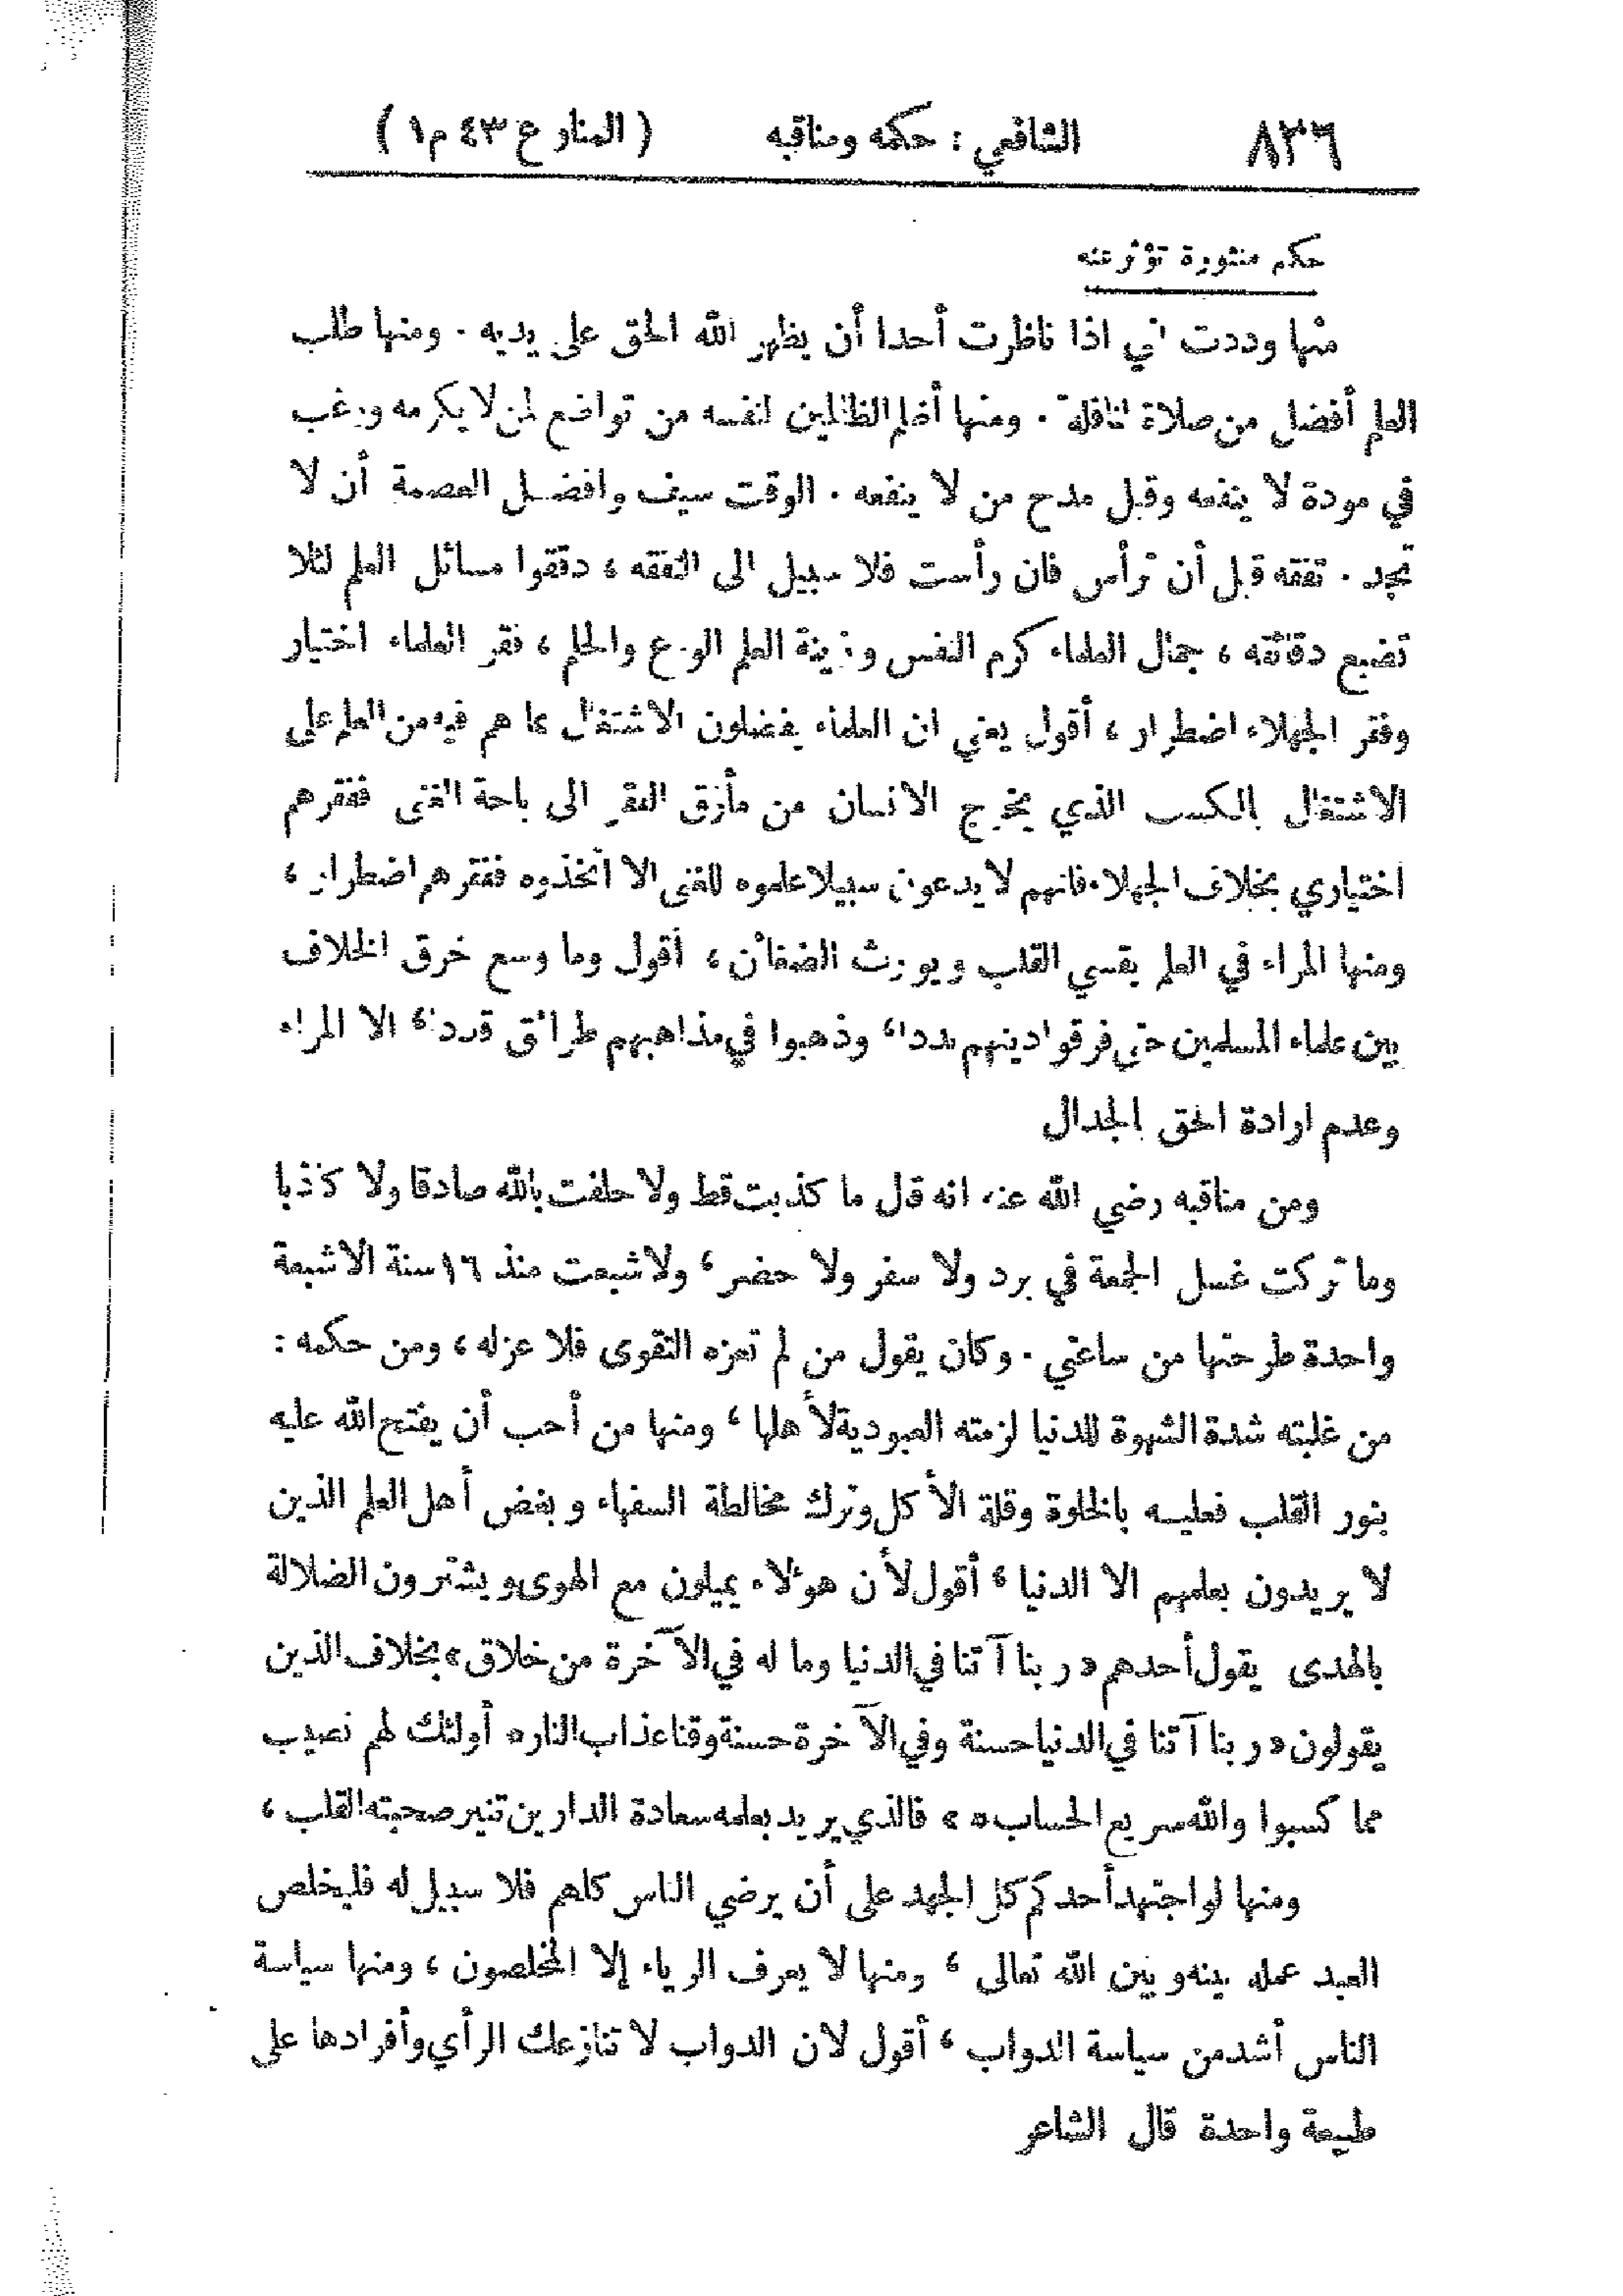 ٨٣٦ الشافعي : حكمه ومناقبه ( المنار ع ٤٣ م ١ )
حكم منثورة تؤثر عنه
منها وددت اني اذا ناظرت أحدا أن يظهر الله الحق على يديه . ومنها طلب
العلم أفضل من صلاة النافلة . ومنها أظلم الظالمين لنفسه من تواضع لمن لا يكرمه ورغب
في مودة لا ينفعه وقبل مدح من لا ينفعه . الوقت سيف وافضل العصمة أن لا
تجد . تفقه قبل أن ترأس فان رأست فلا سبيل الى التفقه ، دققوا مسائل العلم لئلا
تضيع دقائقه ، جمال العلماء كرم النفس وزينة العلم الورع والحلم ، فقر العلماء اختيار
وفقر الجهلاء اضطرار ، أقول يعني ان العلماء يفضلون الاشتغال بما هم فيه من العلم على
الاشتغال بالكسب الذي يخرج الانسان من مأزق الفقر الى باحة الغنى ففقرهم
اختياري بخلاف الجهلاء فانهم لا يدعون سبيلا علموه للغنى الا اتخذوه ففقرهم اضطرار ،
ومنها المراء في العلم يقسي القلب ويورث الضغائن ، أقول وما وسع خرق الخلاف
بين علماء المسلمين حتى فرقوا دينهم بددا ، وذهبوا في مذاهبهم طرائق قددا ، الا المراء
وعدم ارادة الحق بالجدال
ومن مناقبه رضي الله عنه انه قال ما كذبت قط ولا حلفت بالله صادقا ولا كاذبا
وما تركت غسل الجمعة في برد ولا سفر ولا حضر ، ولا شبعت منذ ١٦ سنة الا شبعة
واحدة طرحتها من ساعتي . وكان يقول من لم تعزه التقوى فلا عز له ، ومن حكمه :
من غلبته شدة الشهوة للدنيا لزمته العبودية لأهلها ، ومنها من أحب أن يفتح الله عليه
بنور القلب فعليه بالخلوة وقلة الأكل وترك مخالطة السفهاء وبغض أهل العلم الذين
لا يريدون بعلمهم الا الدنيا ، أقول لأن هؤلاء يميلون مع الهوى ويشترون الضلالة
بالهدى يقول أحدهم « ربنا آتنا في الدنيا وما له في الآخرة من خلاق » بخلاف الذين
يقولون « ربنا آتنا في الدنيا حسنة وفي الآخرة حسنة وقنا عذاب النار ه أولئك لهم نصيب
مما كسبوا والله سريع الحساب ه » فالذي يريد بعلمه سعادة الدارين تنير صحبته القلب ،
ومنها لو اجتهد أحدكم كل الجهد على أن يرضي الناس كلهم فلا سبيل له فليخلص
العبد عمله بينه وبين الله تعالى ، ومنها لا يعرف الرياء إلا المخلصون ، ومنها سياسة
الناس أشد من سياسة الدواب ، أقول لان الدواب لا تنازعك الرأي وأفرادها على
طبيعة واحدة قال الشاعر